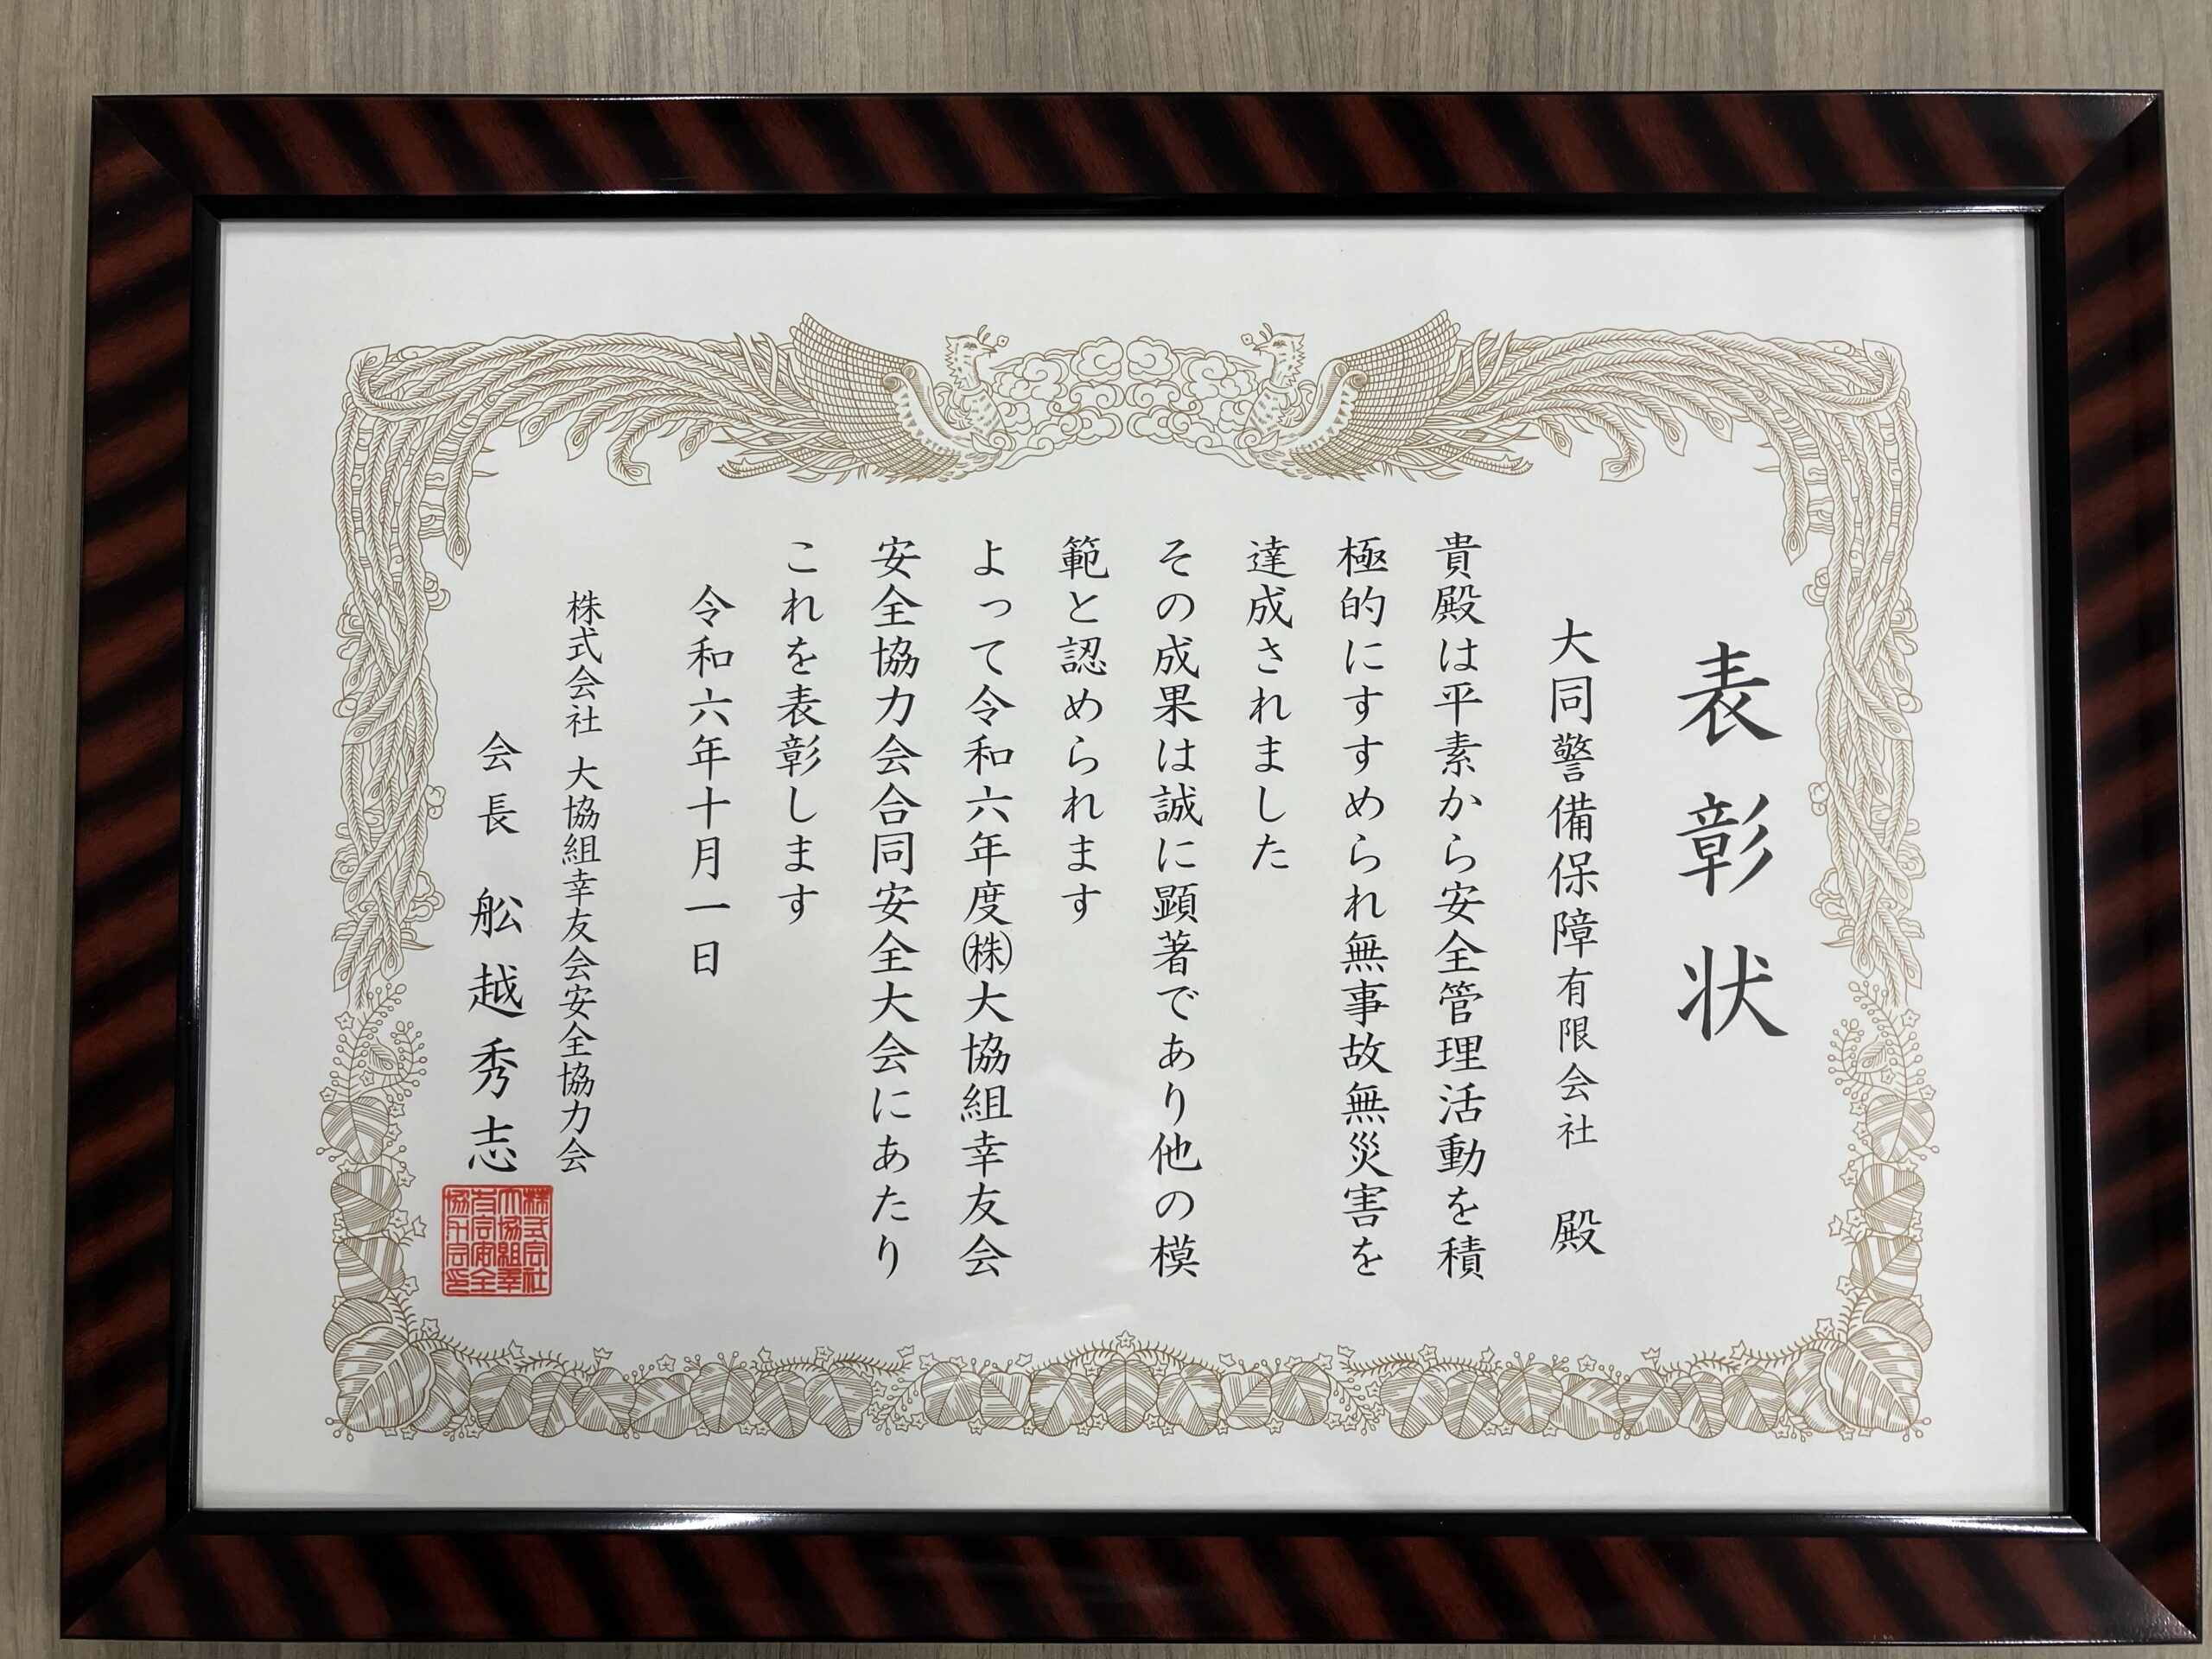 表彰状
大同警備保障有限会社 殿
貴殿は平素から安全管理活動を積
極的にすすめられ無事故無災害を
達成されました
その成果は誠に顕著であり他の模
範と認められます
よって令和六年度㈱大協組幸友会
安全協力会合同安全大会にあたり
これを表彰します
令和六年十月一日
株式会社 大協組幸友会安全協力会
会長 舩越秀志
株式会社
大協組幸
友会安全
協力会印